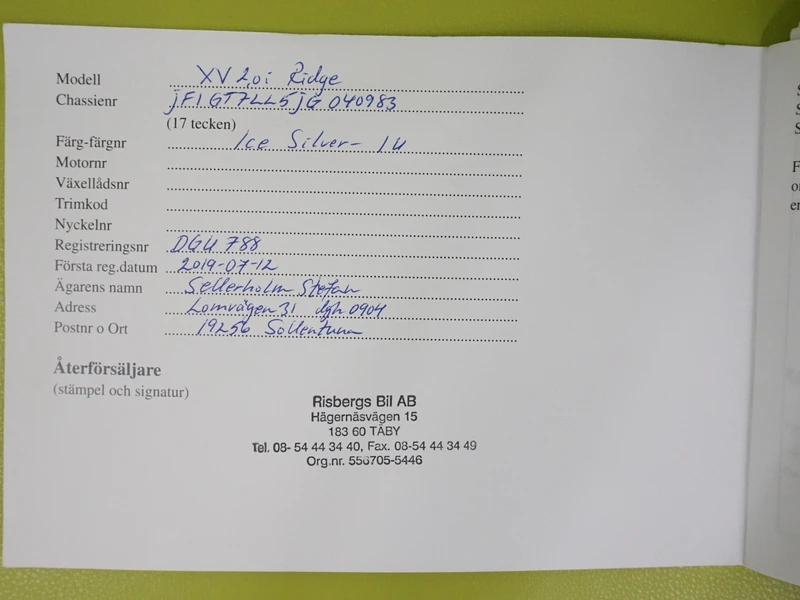 Modell XV 2,0i Ridge
Chassienr JF1GT7LL5JG040983
(17 tecken)
Färg-färgnr Ice Silver - 1U
Motornr
Växellådsnr
Trimkod
Nyckelnr
Registreringsnr DGU 788
Första reg.datum 2019-07-12
Ägarens namn Sellerholm Stefan
Adress Lomvägen 31 lgh 0904
Postnr o Ort 19256 Sollentuna
Återförsäljare
(stämpel och signatur)
Risbergs Bil AB
Hägernäsvägen 15
183 60 TÄBY
Tel. 08- 54 44 34 40, Fax. 08-54 44 34 49
Org.nr. 556705-5446